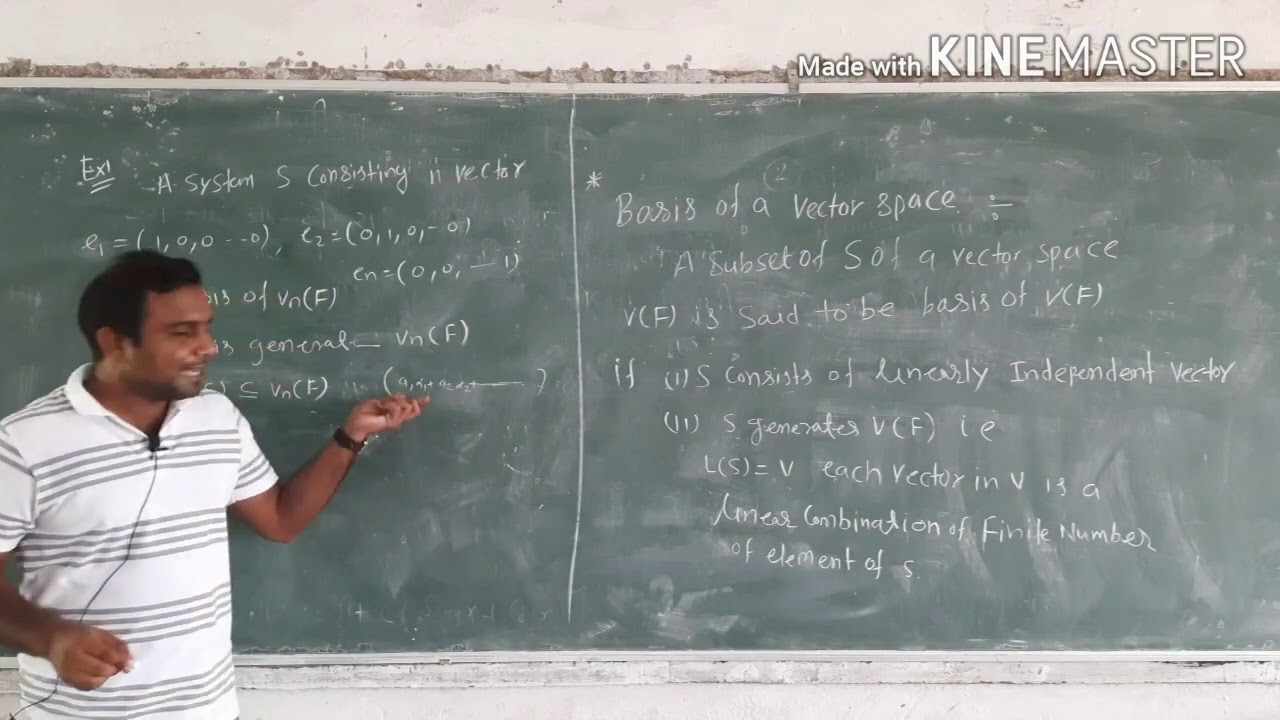 Made with KINEMASTER
Ex1 A System S Consisting n vector
e1 = (1,0,0 --0), e2=(0,1,0,-0)
en=(0,0,— 1)
of Vn(F)
general— Vn(F)
⊆ Vn(F)
*
Basis of a vector space ÷
A Subset of S of a vector space
V(F) is Said to be basis of V(F)
if (I) S Consists of linearly Independent Vector
(II) S generates V(F) i e
L(S)= V each vector in V is a
linear Combination of Finite Number
of element of S.